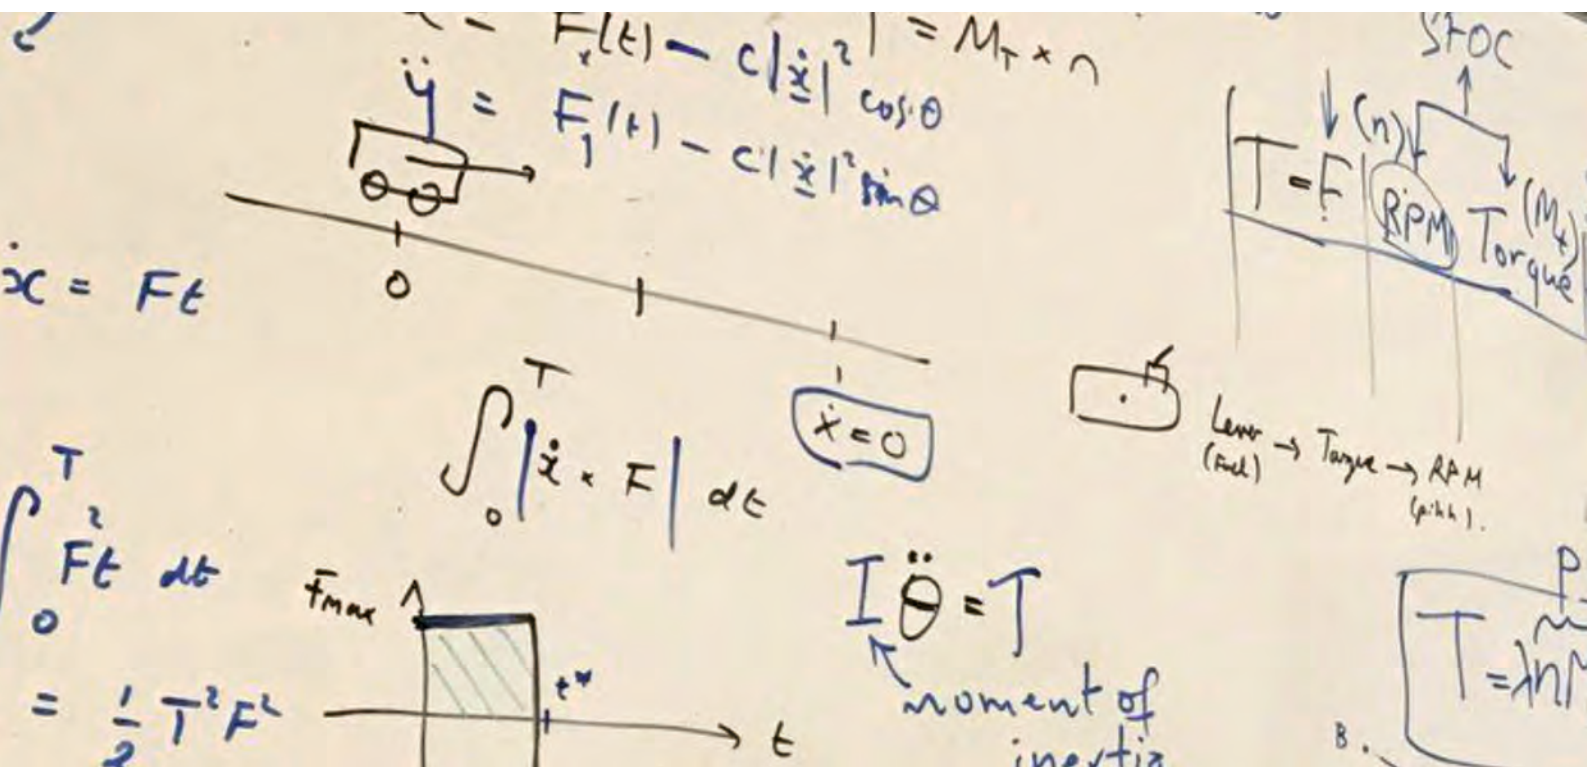 F_x(t) - c|ẋ|² cosθ
| = M_T × n
ÿ = F_y(t) - c|ẋ|² sinθ
SFOC
(n)
T = F | RPM Torque (M_t)
0
ẋ = Ft
ẋ = 0
∫_0^T |ẋ · F| dt
Lever → Torque → RPM
(Fuel) (pitch).
∫_0^T F²t dt
= 1/2 T²F²
Fmax
t*
t
Iθ̈ = T
moment of
inertia
P
T = λnM
B.